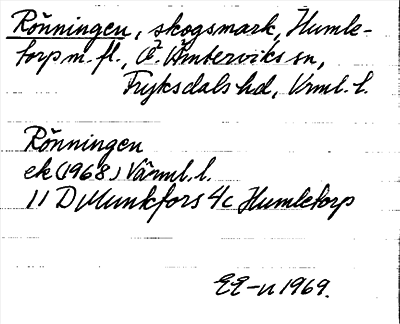 Rönningen, skogsmark, Humle-
torp m. fl., Ö. Ämterviks sn,
Fryksdals hd, Vrml. l.
Rönningen
ek (1968) Värml. l.
11 D Munkfors 4c Humletorp
EE-n 1969.